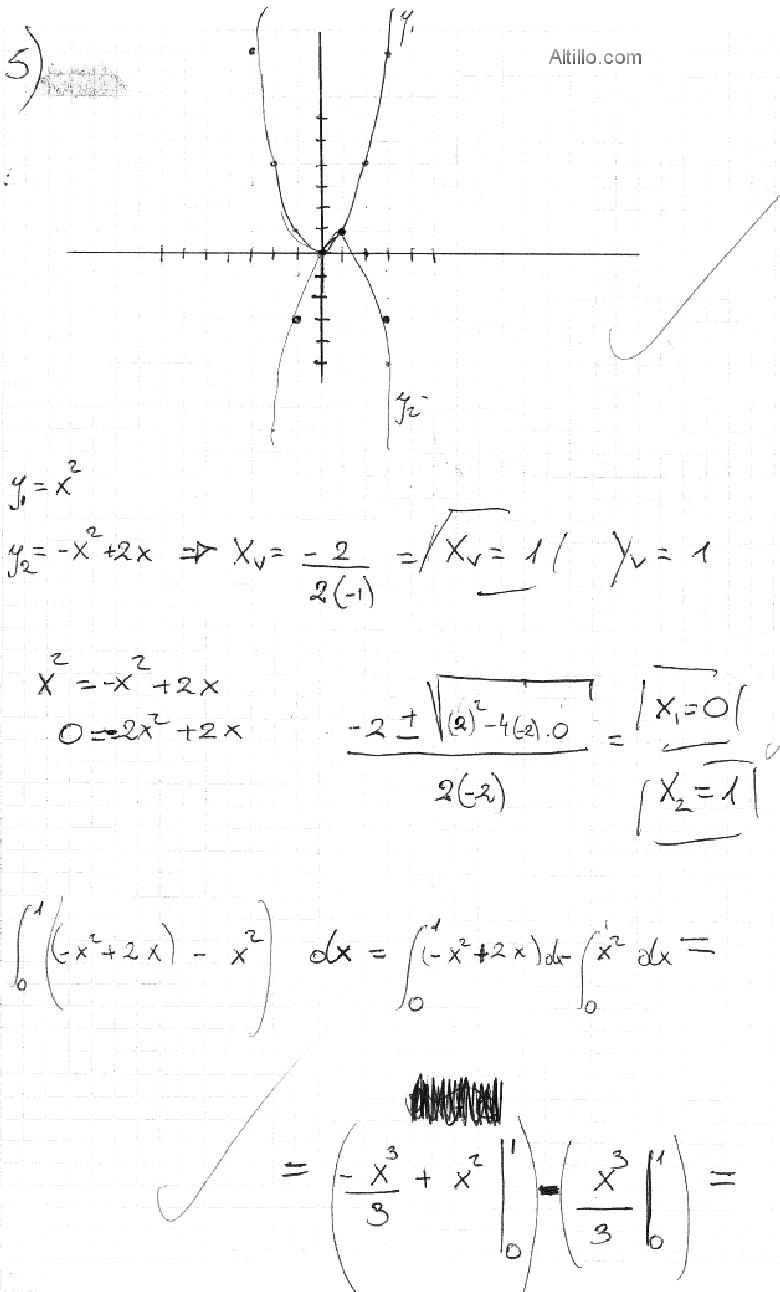 5)
Altillo.com
y₁
y₂
y₁ = x²
y₂ = -x² + 2x ⇒ Xᵥ = -2 / 2(-1) = Xᵥ = 1 Yᵥ = 1
x² = -x² + 2x
0 = -2x² + 2x
-2 ± √((2)² - 4(-2).0) / 2(-2) = X₁ = 0
X₂ = 1
∫₀¹ ((-x² + 2x) - x²) dx = ∫₀¹ (-x² + 2x) dx - ∫₀¹ x² dx =
= (-x³/3 + x² |₀¹) - (x³/3 |₀¹) =